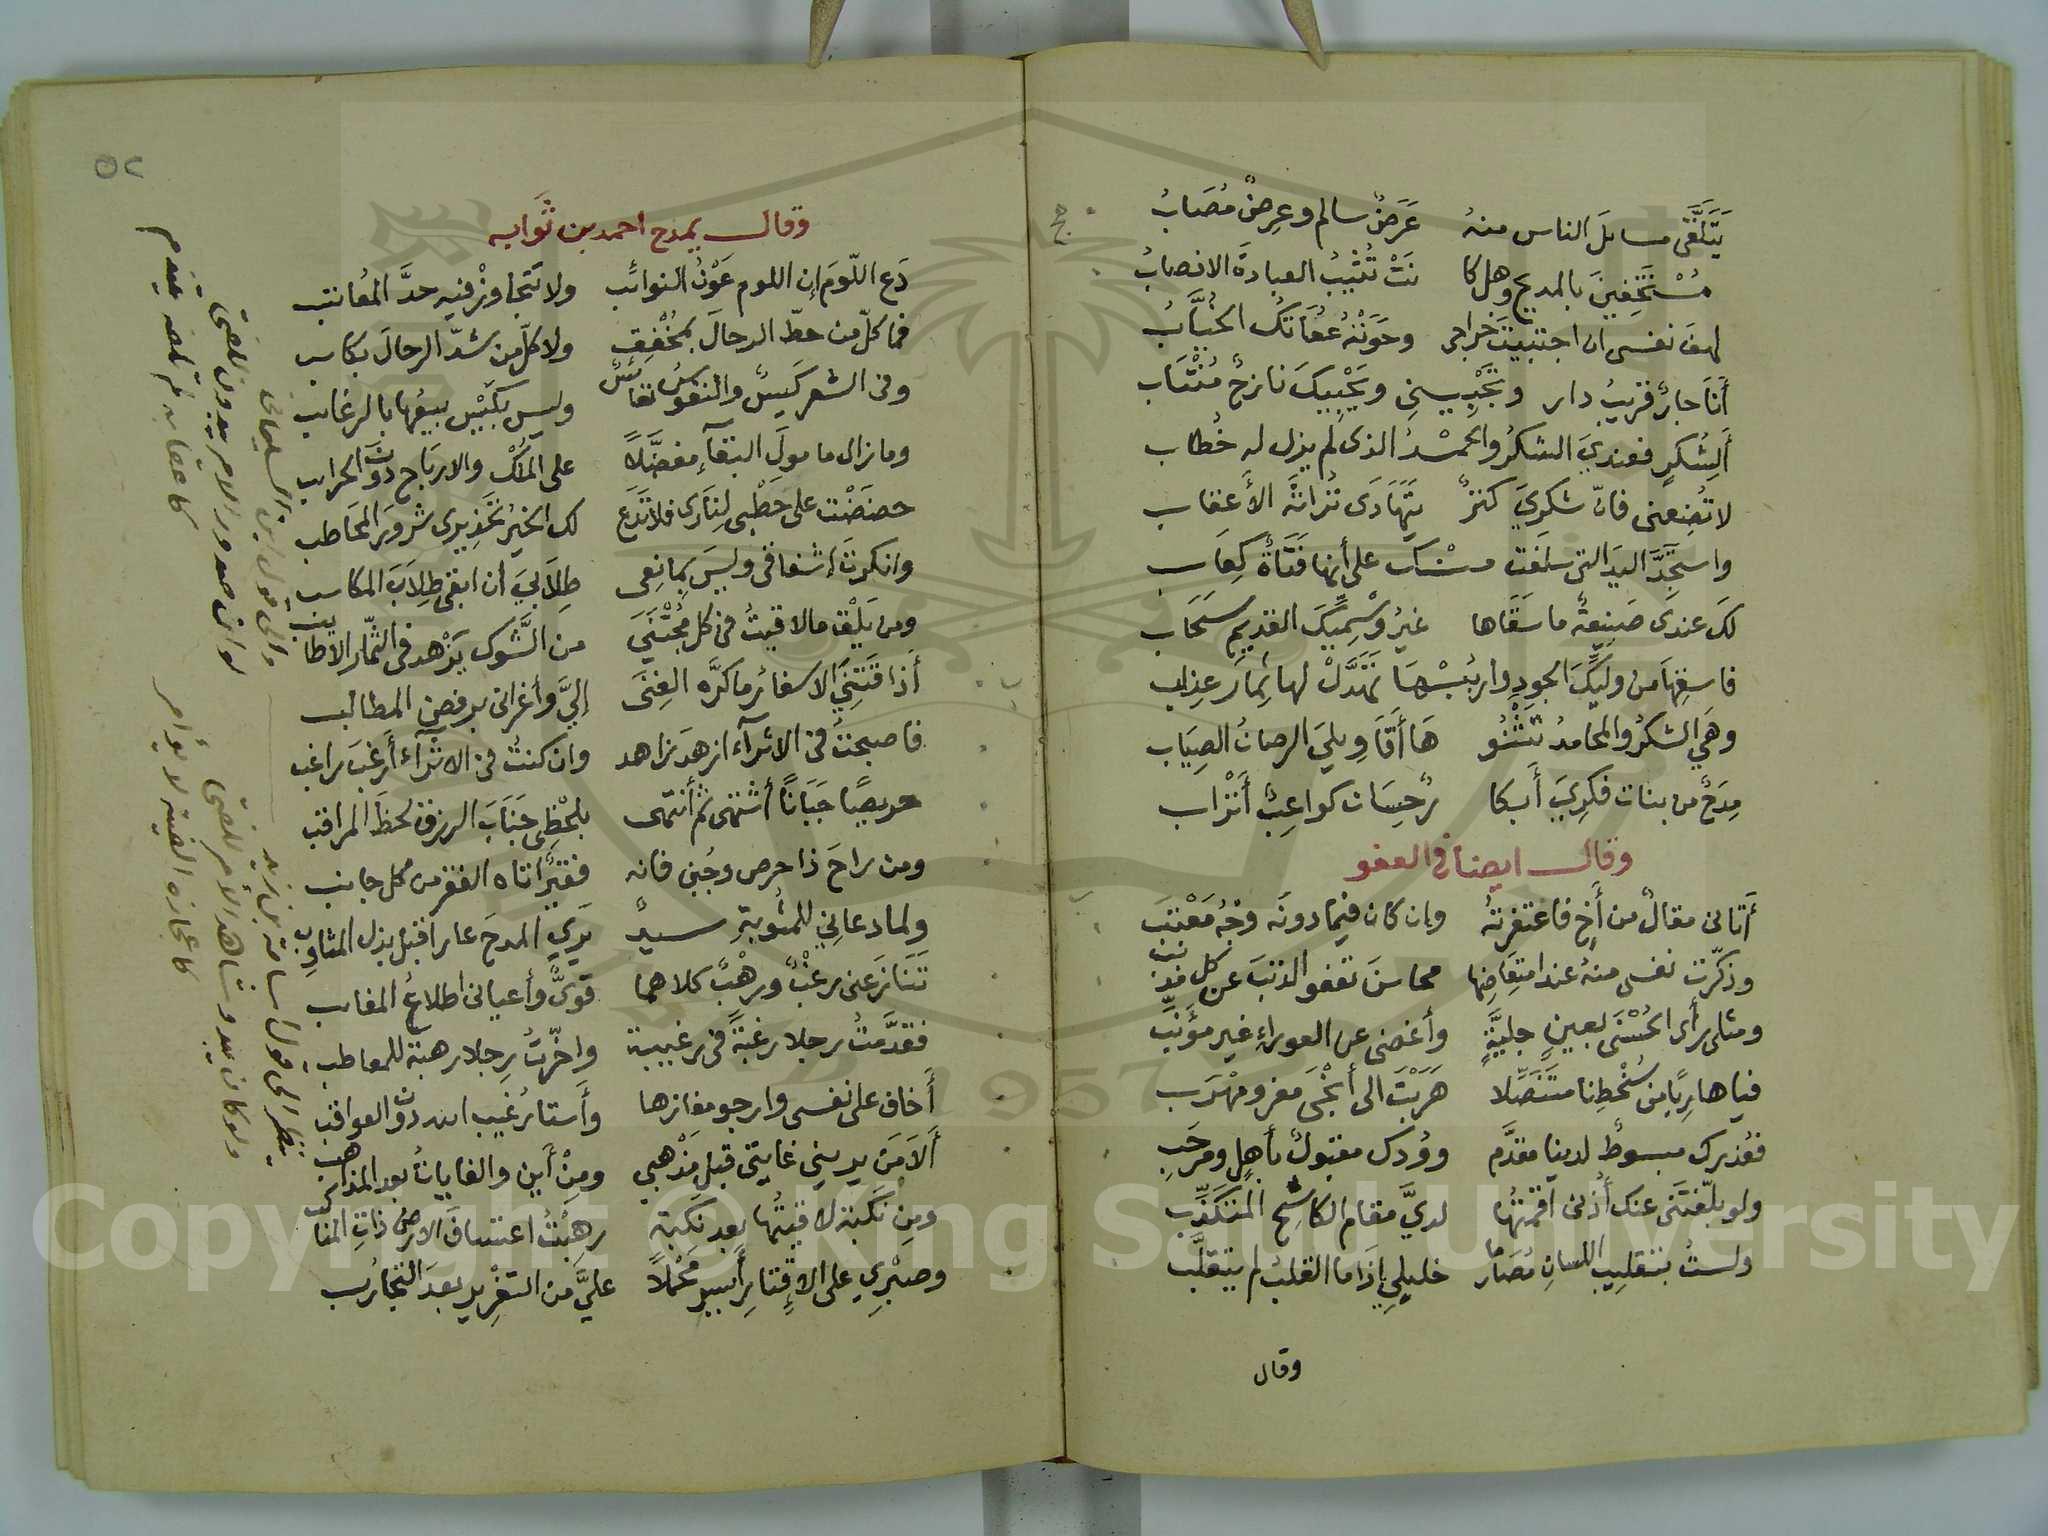 يَتَلَقَّى مسائلَ الناس منهُ عَرَضٌ سالم وعِرضٌ مُصَابُ
مُسْتَخِفِّينَ بالمديح وهل كا نتْ تُثيبُ العبادةَ الانصابُ
لهفَ نفسى ان اجتبيتَ خراجى وحَوَتْهُ عُفَاتكُ الخُيَّابُ
أنَا جارٌ قريبُ دار وتَجْبِينى ويَجْبِيكَ نازحٌ مُنْتَاب
أَلِشُكرٍ فعندي الشكرُ والحمدُ الذى لم يزل له خُطاب
لا تُضِعنى فانّ شكريَ كنزٌ يَتَهَادَى تُراثَهُ الأعقاب
واستَجِدَّ اليدَ التى سلَفت منك على أنها فَتَاةٌ كِعَاب
لكَ عندى صَنِيعةٌ ما سَقَاها غيرُ وَسْمِيِّكَ القديمِ سَحَاب
فاسقِهَا من وليِّكَ الجودِ واربُبْهَا تهدَّلْ لها ثمار عِذاب
وهي الشكرُ والمحامدُ تتْلُو هَا أَقَاوِيليَ الرصانُ الصِيَاب
مِدَحٌ من بنات فكريَ أَبكا رٌ حِسَان كواعِبٌ أتْرَاب
وقال ايضا فى العفو
أتانى مقالٌ من أخٍ فاغتفرتهُ وإن كان فيما دونَه وجْهُ مَعْتَب
وذكّرت نفسى منهُ عند امتعَاضِها محاسنَ تعفو الذنبَ عن كل مذنب
ومثلى رأى الحُسْنَى بعينٍ جليَّةٍ وأغضى عن العوراءِ غير مؤَنِّب
فيا هارِبًا من سُخْطِنا متَنَصِّلا هَرَبْتَ الى أنْجَى مفر ومهْرَب
فعُذرك مبسوطٌ لدينا مقدَّم ووُدك مقبولٌ بأهلٍ ومرحَبِ
ولو بلّغتَنى عنك أُذنى أقمتُها لديَّ مقام الكاشح المتكذِّب
ولستُ بتقليب اللسانِ مُصَارما خليلى إذا ما القلبُ لم يتقلَّب
وقال
٥٢
وقال يمدح احمد بن ثَوَابه
دَعِ اللّومَ إن اللوم عَوْنُ النوائب ولا تتجاوزْ فيه حدَّ المُعاتب
فما كلّ من حطّ الرحالَ بمُخْفِق ولا كلّ من شدّ الرحالَ بكاسب
وفى الشعر كَيسٌ والنفوسُ نفائسٌ وليس بكَيْس بيعُها بالرغايب
وما زال مامولَ البقاءِ مفضَّلاً على المُلْك والارباح دون الحرايب
حضضْت على حَطْبى لِنارى فلا تَدَع لك الخيرُ تحذيرى شرورَ المحَاطب
وانكرتَ إشفاقى وليسَ بمانِعى طِلاَبيَ أن ابغى طِلابَ المكاسب
ومن يَلْق ما لاقيتُ فى كل مُجْتَنَي من الشَّوك يَزْهد فى الثّمار الأطايب
أذاقتنيَ الاسفارُ ما كرَّه الغِنَى إليَّ وأغرانى برفضِ المطالب
فاصبحتُ فى الاثرآء ازهدَ زاهد وان كنتُ فى الاثرآء أرغبَ راغب
حريصًا جَبَانًا أشتهى ثم أنتهى بلَحْظى جَنَابَ الرزق لحظَ المراقب
ومن راحَ ذا حرص وجُبن فانه فقيرٌ اتاه الفقر من كل جانب
ولما دعانِي للمثُوبةِ سيدٌ يَرَى المدحَ عارا قبل بذل المثاوب
تَنَازعنى رغْبٌ ورهْبٌ كلاهما قويٌّ وأعيانى اطلاعُ المغايب
فقدَّمتُ رجلا رغبةً فى رغيبة واخّرتُ رِجلا رهبة للمعاطب
أخاف على نفسى وارجو مفازها وأَستارُ غيب الله دون العواقب
أَلاَ مَن يرينى غايتى قبل مَذْهبي ومنْ أين والغاياتُ بعد المذاهب
ومِنْ نَكبةٍ لاقيتُها بعد نكبةٍ رهِبْتُ اعتسافَ الارض ذاتِ المناكب
وصبْرِي على الاقتار أَيسر مَحْملاً عليَّ من التغريرِ بعدَ التجارُب